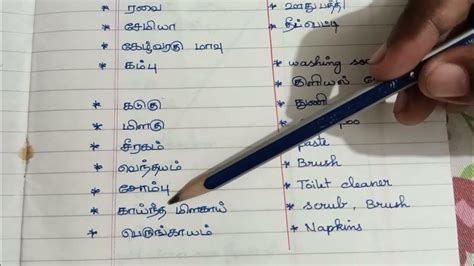 * ரவை
* சேமியா
* கேழ்வரகு மாவு
* கம்பு
* கடுகு
* மிளகு
* சீரகம்
* வெந்தயம்
* சோம்பு
* காய்ந்த மிளகாய்
* பெருங்காயம்
* ஊதுபத்தி
* தீப்பெட்டி
* washing
* குளியல்
* துணி
paste
* Brush
* Toilet cleaner
* scrub, Brush
* Napkins